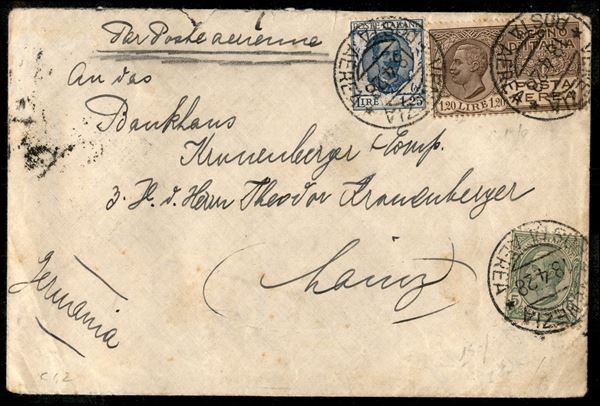 Per Posta aerienne
POSTE ITALIANE
LIRE 1,25
1.20 LIRE 1.20
REGNO
D'ITALIA
POSTA
VENEZIA
POSTA AEREA
An das
Bankhaus
Kronenberger & Comp.
z. H. d. Herrn Theodor Kronenberger
(Mainz)
Germania
VENEZIA
POSTA AEREA
8.4.28
C 1,2